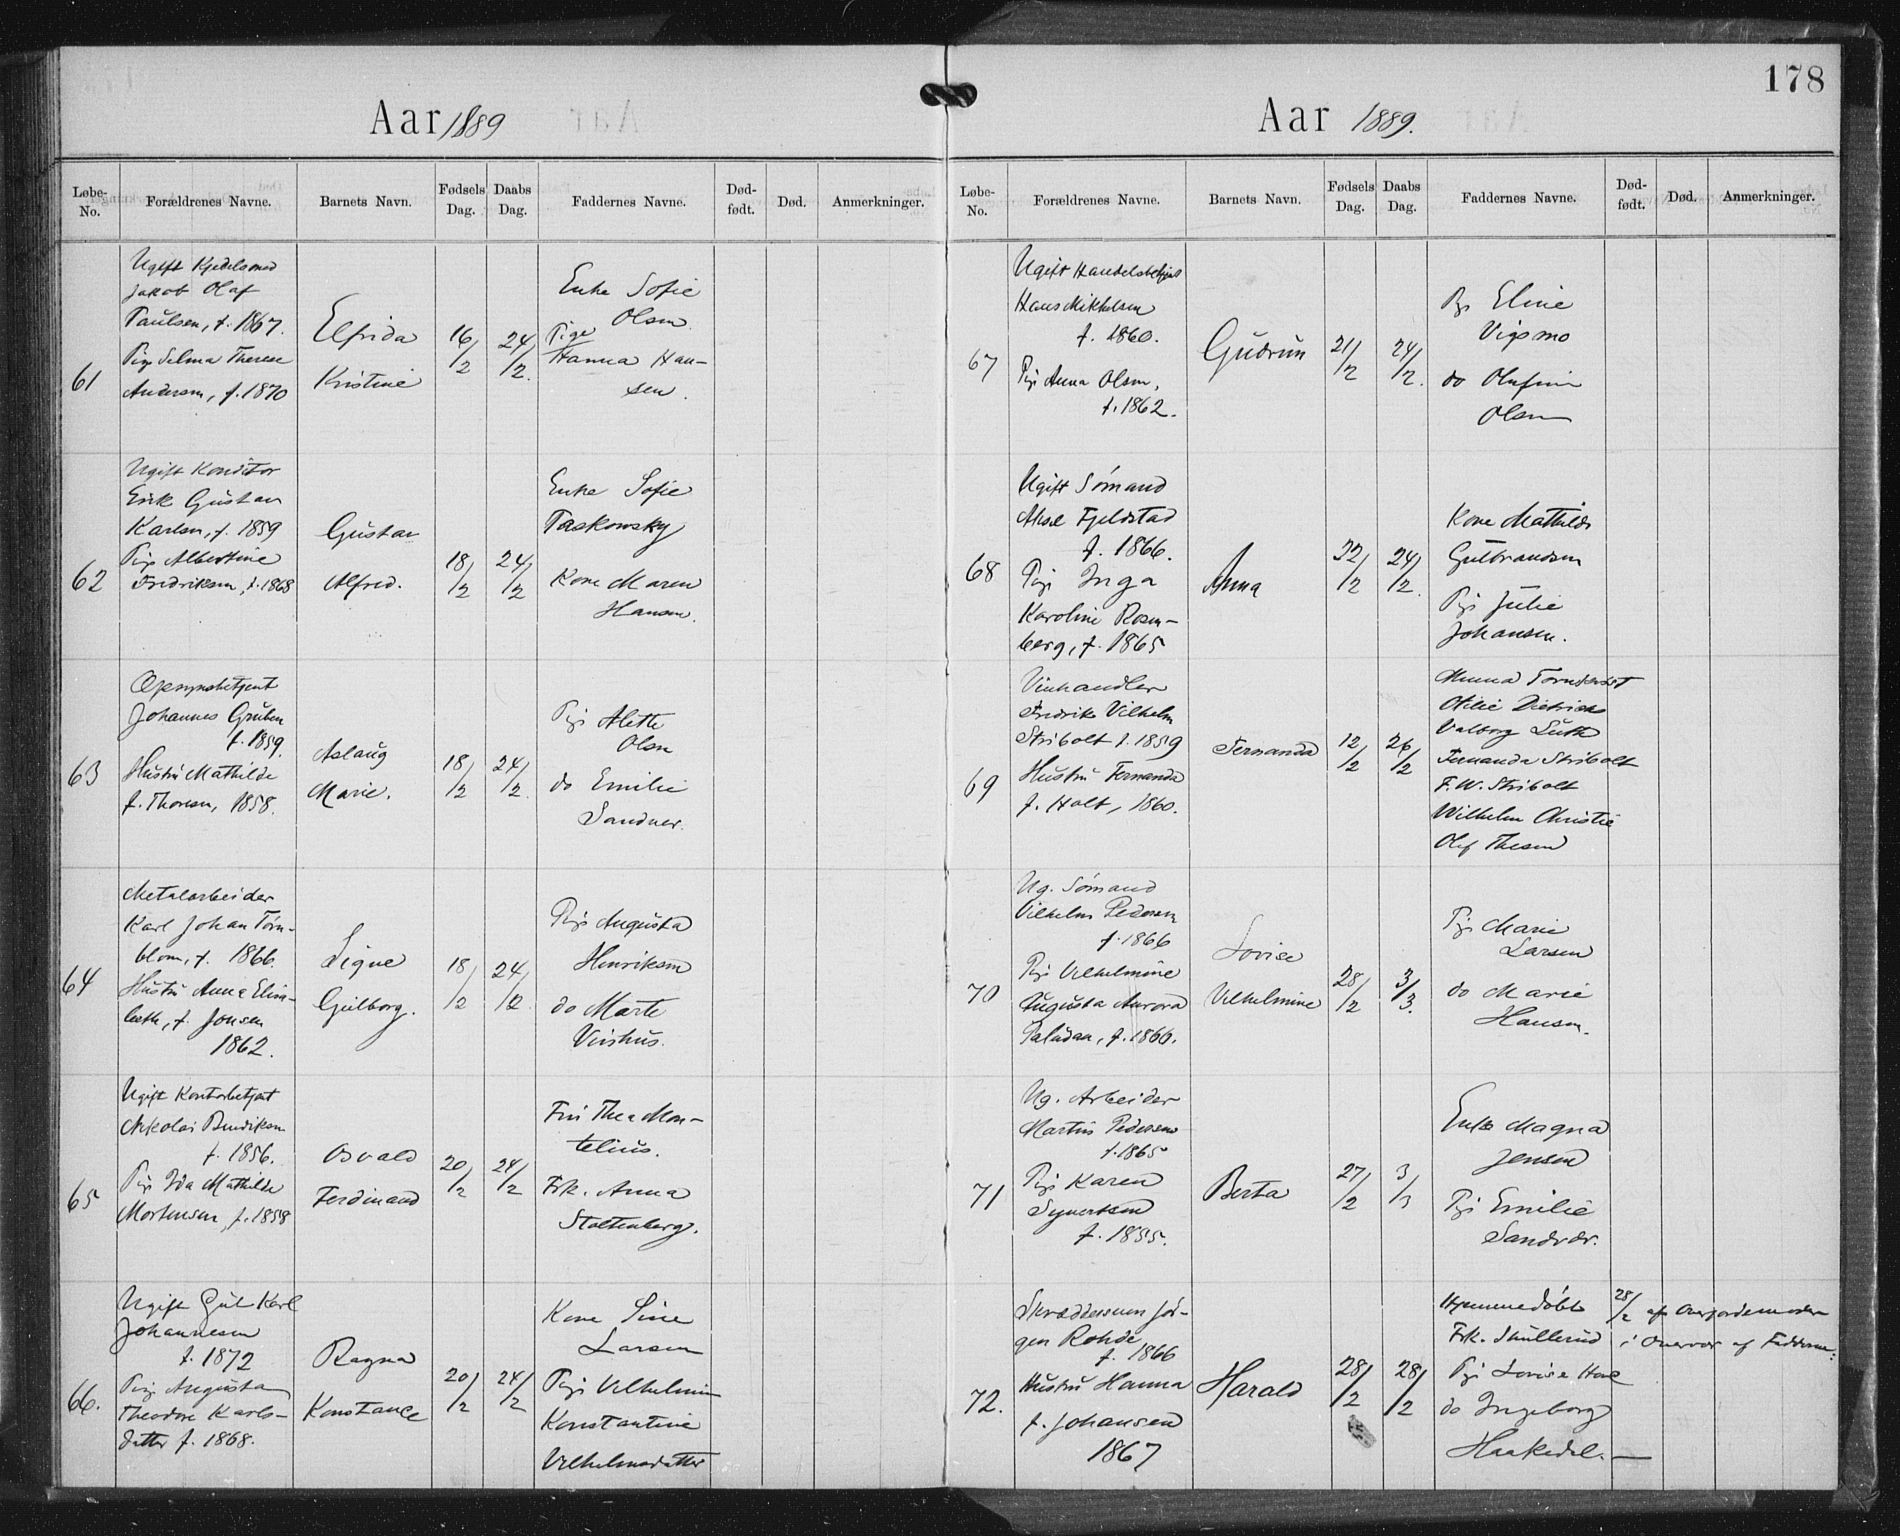 178
Aar 1889
Løbe-No. Forældrenes Navne. Barnets Navn. Fødsels Dag. Daabs Dag. Faddernes Navne. Død-født. Død. Anmerkninger.
61
Ugift Kjedelsmed
Jakob Olaf
Paulsen, f. 1867.
Pige Selma Therese
Andersen, f. 1870
Elfrida
Kristine
16/2
24/2.
Enke Sofie
Olsen
Pige
Hanna Han-
sen.
62
Ugift Konditor
Erik Gustav
Karlsen, f. 1859
Pige Albertine
Fredriksen, f. 1868
Gustav
Alfred.
18/2
24/2
Enke Sofie
Taskowsky
Kone Maren
Hansen.
63
Opsynsbetjent
Johannes Gruben
f. 1859.
Hustru Mathilde
f. Thoresen, 1858.
Aslaug
Marie.
18/2
24/2
Pige Alette
Olsen
do Emilie
Sandvær.
64
Metalarbeider
Karl Johan Törn-
blom, f. 1866.
Hustru Anna Elisa-
beth, f. Jonsen
1862.
Signe
Gulborg.
18/2
24/2
Pige Augusta
Henriksen
do Marte
Virshus.
65
Ugift Kontorbetjent
Nikolai Bendiksen
f. 1856.
Pige Ida Mathilde
Mortensen, f. 1858
Osvald
Ferdinand
20/2
24/2
Fru Thea Mon-
telius.
Frk. Anna
Stoltenberg.
66.
Ugift Gut Karl
Johannesen
f. 1872
Pige Augusta
Theodore Karls-
datter f. 1868.
Ragna
Konstance
20/2
24/2
Kone Sine
Larsen
Pige Vilhelmine
Konstantine
Vilhelmsdatter
Aar 1889.
Løbe-No. Forældrenes Navne. Barnets Navn. Fødsels Dag. Daabs Dag. Faddernes Navne. Død-født. Død. Anmerkninger.
67
Ugift Handelsbetjent
Hans Mikkelsen
f. 1860.
Pige Anna Olsen,
f. 1862.
Gudrun
21/2
24/2.
Pge Eline
Vigsmo
do Olufine
Olsen
68
Ugift Sømand
Aksel Fjeldstad
f. 1866.
Pige Inga
Karoline Rosen-
berg, f. 1865
Anna
22/2
24/2.
Kone Mathilde
Gulbrandsen
Pige Julie
Johansen.
69
Vinhandler
Fredrik Vilhelm
Stribolt f. 1859
Hustru Fernanda
f. Holt, 1860.
Fernanda
12/2
26/2
Otilie Dietrichs
Valborg Luth
Fernanda Stribolt
F. W. Stribolt
Wilhelm Christie
Olaf Thesen
70
Ug. Sømand
Vilhelm Pedersen
f. 1866
Pige Vilhelmine
Augusta Aurora
Paludan, f. 1860.
Lovise
Vilhelmine
28/2
3/3.
Pige Marie
Larsen
do Marie
Hansen.
71
Ug. Arbeider
Martin Pedersen
f. 1865
Pige Karen
Synertsen
f. 1855.
Berta
27/2
3/3
Enke Magna
Jensen
Pige Emilie
Sandvær.
72.
Skræddersvend Jør-
gen Rohde
f. 1866
Hustru Hanna
f. Johansen
1867
Harald
28/2
28/2
Hjemmedøbt 28/2 af Overjordemoder
Frk. Skullerud i Overvær af Fadderne:
Pige Lovise
do Ingeborg
Haakedal.